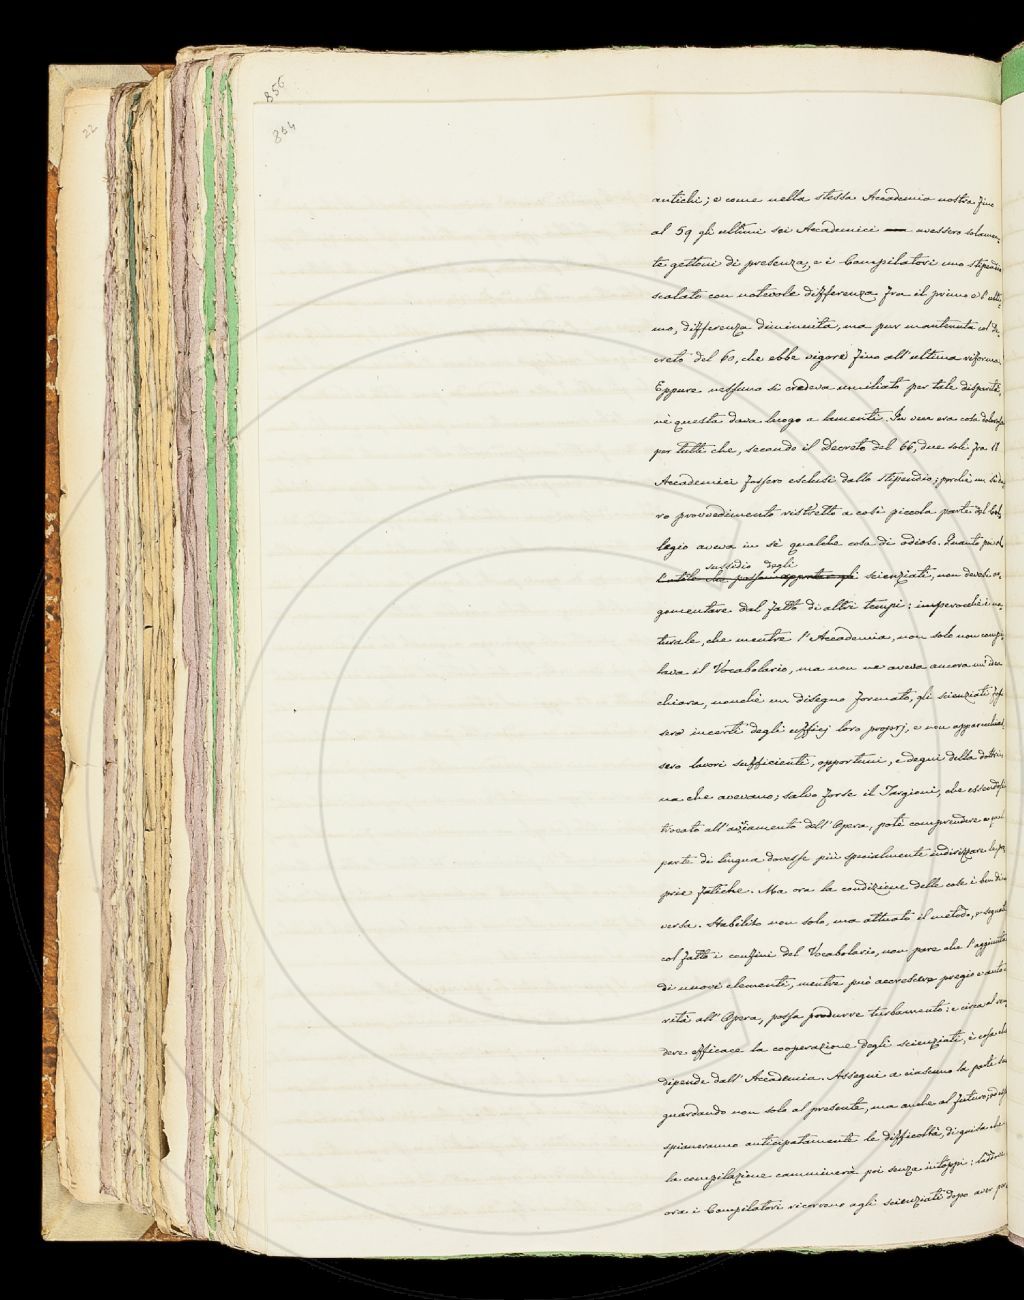 856
854
22
antichi; e come nella stessa Accademia nostra fino
al 59 gli ultimi sei Accademici avessero solamen-
te gettoni di presenza, e i Compilatori uno stipendio
scalato con notevole differenza fra il primo e l'ulti-
mo, differenza diminuita, ma pur mantenuta col De-
creto del 60, che ebbe vigore fino all'ultima riforma.
Eppure nessuno si credeva umiliato per tale disparità,
nè questa dava luogo a lamenti. Era cosa dolorosa
per tutti che, secondo il Decreto del 66, due soli fra 11
Accademici fossero esclusi dallo stipendio; perchè un
ro provvedimento ristretto a così piccola parte del Col-
legio aveva in sè qualche cosa di odioso. Quanto poi al
sussidio degli
l'utile che possono apportare gli scienziati, non devesi ar-
gomentare dal fatto di altri tempi: imperocchè è na-
turale, che mentre l'Accademia, non solo non compi-
lava il Vocabolario, ma non ne aveva ancora un'idea
chiara, nonchè un disegno formato, gli scienziati fos-
sero incerti degli ufficj loro proprj, e non apparecchias-
sero lavori sufficienti, opportuni, e degni della dottri-
na che avevano; salvo forse il Targioni, che essendosi
trovato all'avviamento dell'Opera, potè comprendere a qual
parte di lingua dovesse più specialmente indirizzare le pro-
prie fatiche. Ma ora la condizione delle cose è ben di-
versa. Stabilito non solo, ma attuato il metodo, e segnati
col fatto i confini del Vocabolario, non pare che l'aggiunta
di nuovi elementi, mentre può accrescere pregio e auto-
rità all'Opera, possa produrre turbamento: e circa al ren-
dere efficace la cooperazione degli scienziati, è cosa che
dipende dall'Accademia. Assegni a ciascuno la parte sua
guardando non solo al presente, ma anche al futuro; ed essi
spianeranno anticipatamente le difficoltà, di guisa che
la compilazione camminerà poi senza intoppi: laddove
ora i Compilatori ricorrono agli scienziati dopo aver